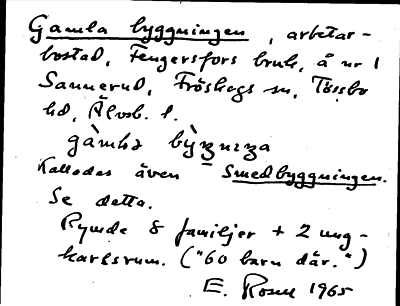 Gamla byggningen, arbetar-
bostad, Fengersfors bruk, å nr 1
Sannerud, Fröskogs sn, Tössbo
hd, Älvsb. l.
gàmƚa bỳgnɩŋa
Kallades även Smedbyggningen.
Se detta.
Rymde 8 familjer + 2 ung-
karlsrum. ("60 barn där.")
E. Rosell 1965